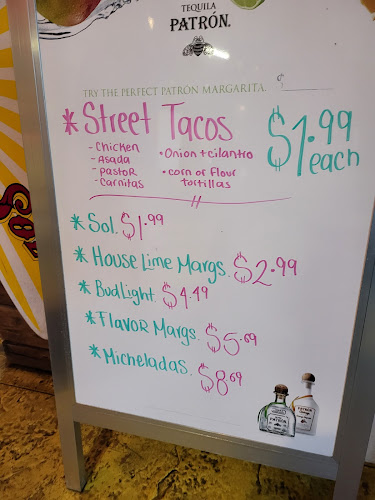 TEQUILA
PATRÓN.
TRY THE PERFECT PATRÓN MARGARITA. ¢
* Street Tacos $1.99 each
- Chicken
- Asada
- pastoR
- Carnitas
• Onion + cilantro
• corn or flour
tortillas
* Sol. $1.99
* House Lime Margs. $2.99
* Bud Light. $4.49
* Flavor Margs. $5.69
* Micheladas. $8.69
PATRÓN